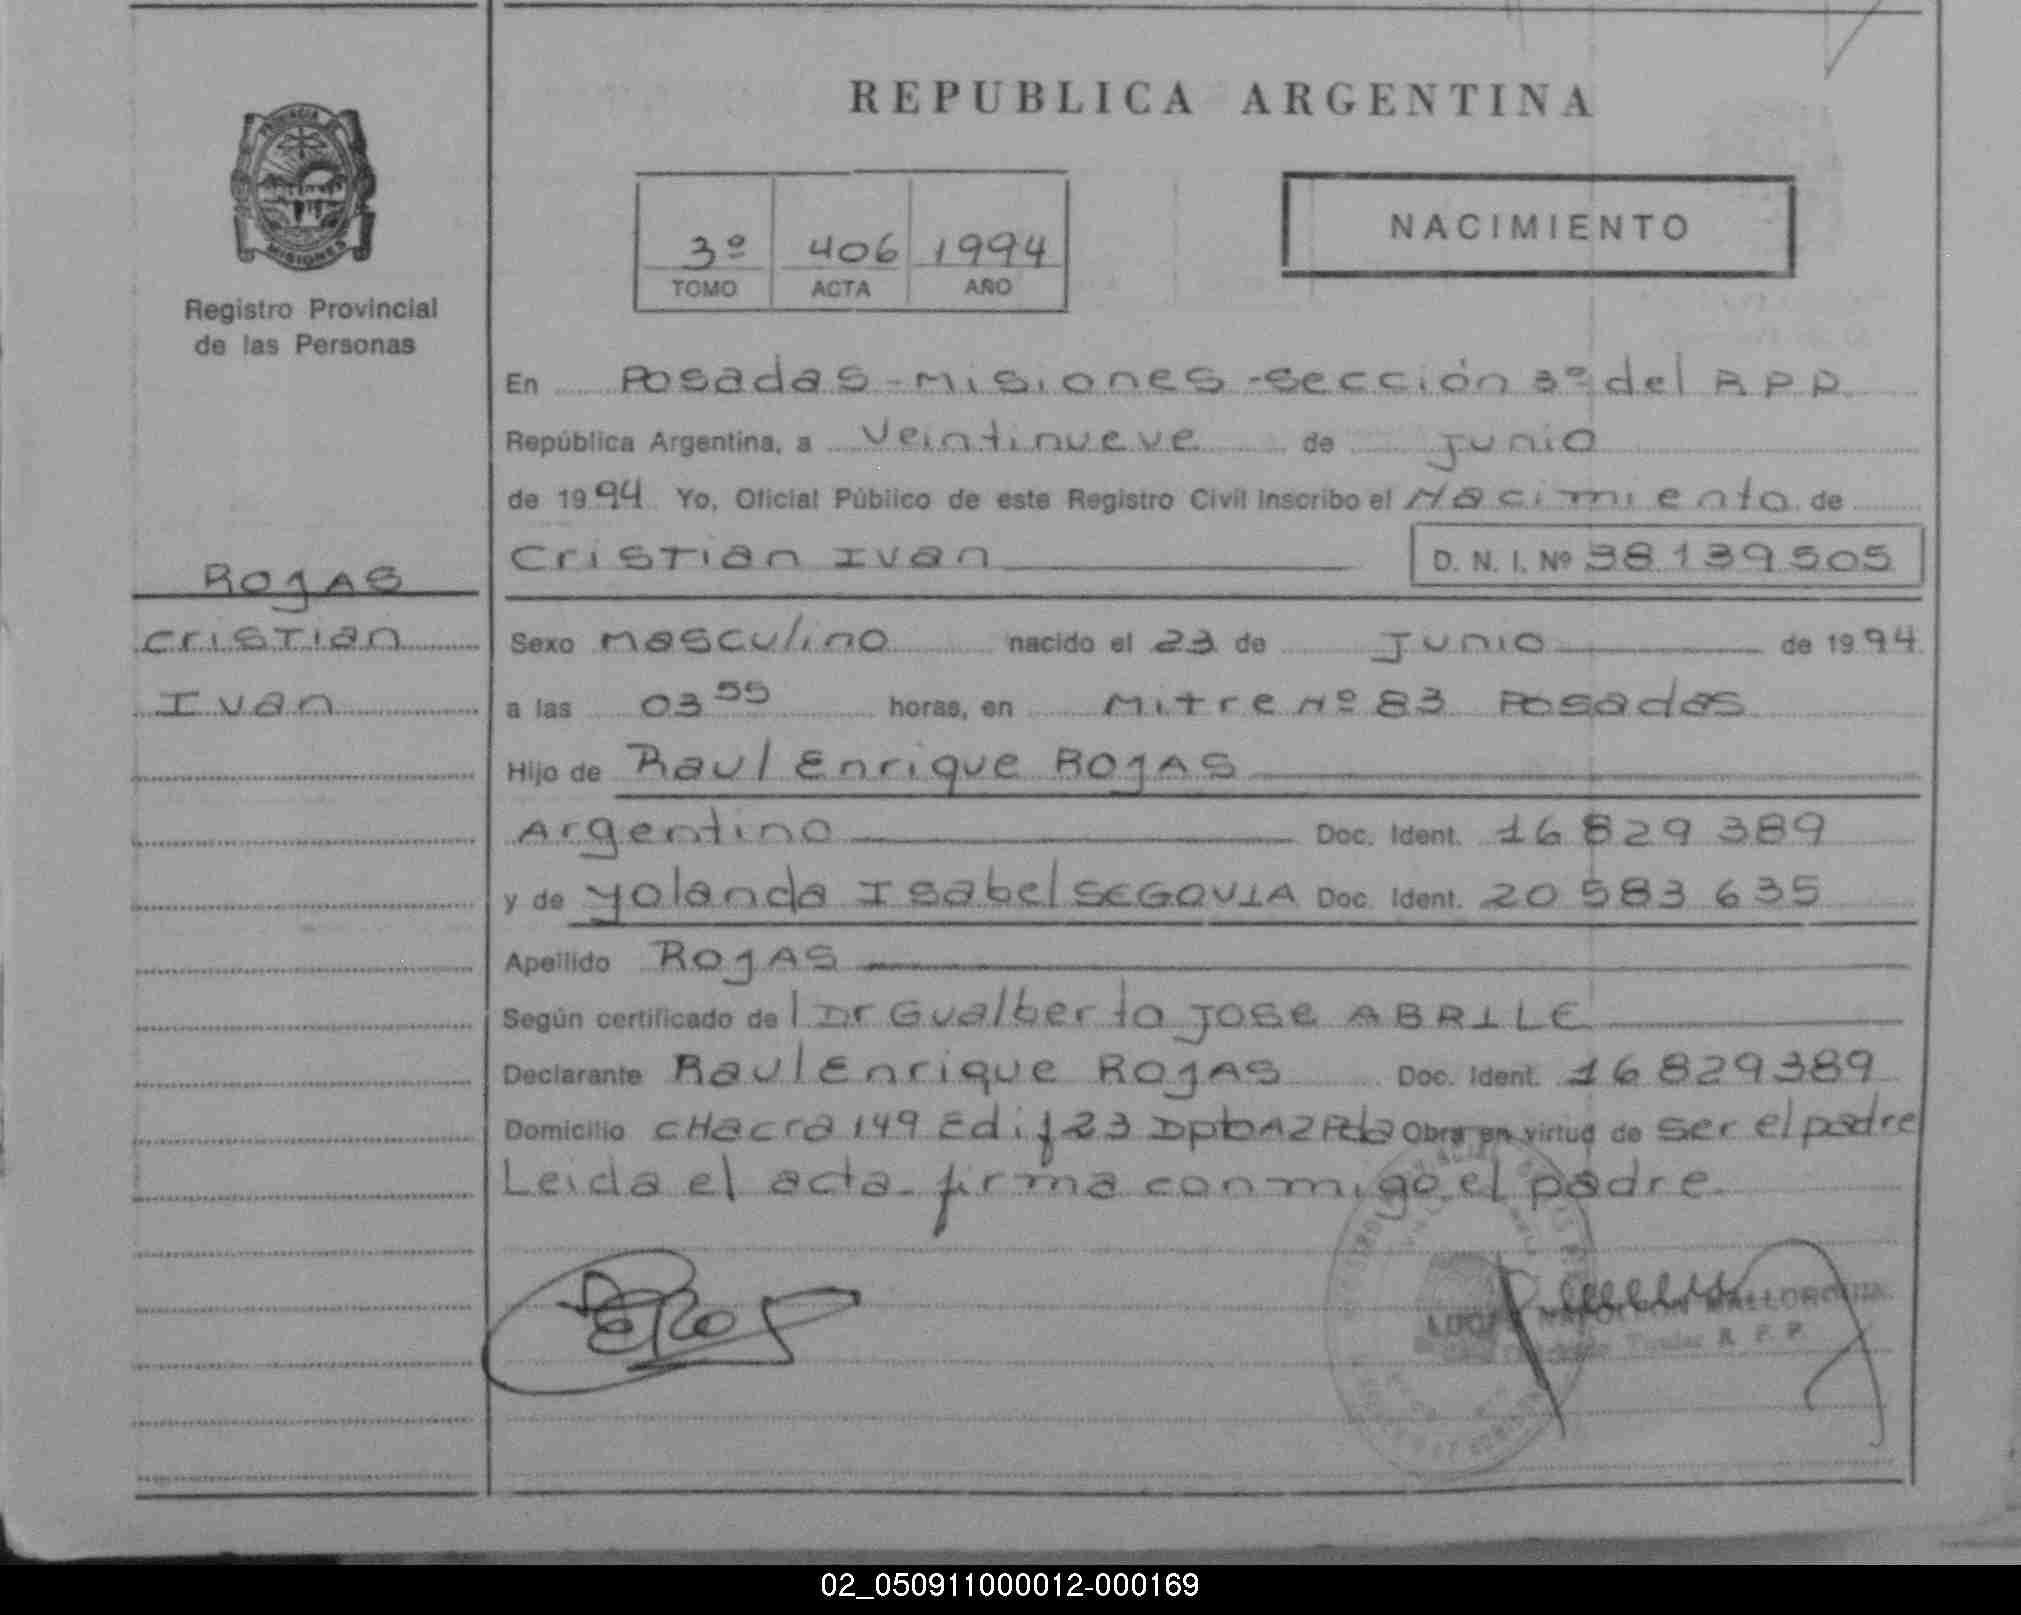 REPUBLICA ARGENTINA
PROVINCIA DE
MISIONES
Registro Provincial
de las Personas
3º 406 1994
TOMO ACTA AÑO
NACIMIENTO
En Posadas - Misiones - sección 3º del RPP
República Argentina, a Veintinueve de Junio
de 1994 Yo, Oficial Público de este Registro Civil inscribo el Nacimiento de
Cristian Ivan D. N. I. Nº 38.139.505
ROJAS
Cristian
Ivan
Sexo masculino nacido el 23 de Junio de 1994
a las 03 55 horas, en Mitre Nº 83 Posadas
Hijo de Raul Enrique ROJAS
Argentino Doc. Ident. 16 829 389
y de Yolanda Isabel SEGOVIA Doc. Ident. 20 583 635
Apellido ROJAS
Según certificado de l Dr Gualberto Jose ABRILE
Declarante Raul Enrique ROJAS Doc. Ident. 16 829389
Domicilio CHacra 149 Edif 23 Dpto A2 Pda Obra en virtud de ser el padre
Leida el acta firma conmigo el padre
NAPOLEON MALLORQUIN
Titular R. P. P.
02_050911000012-000169